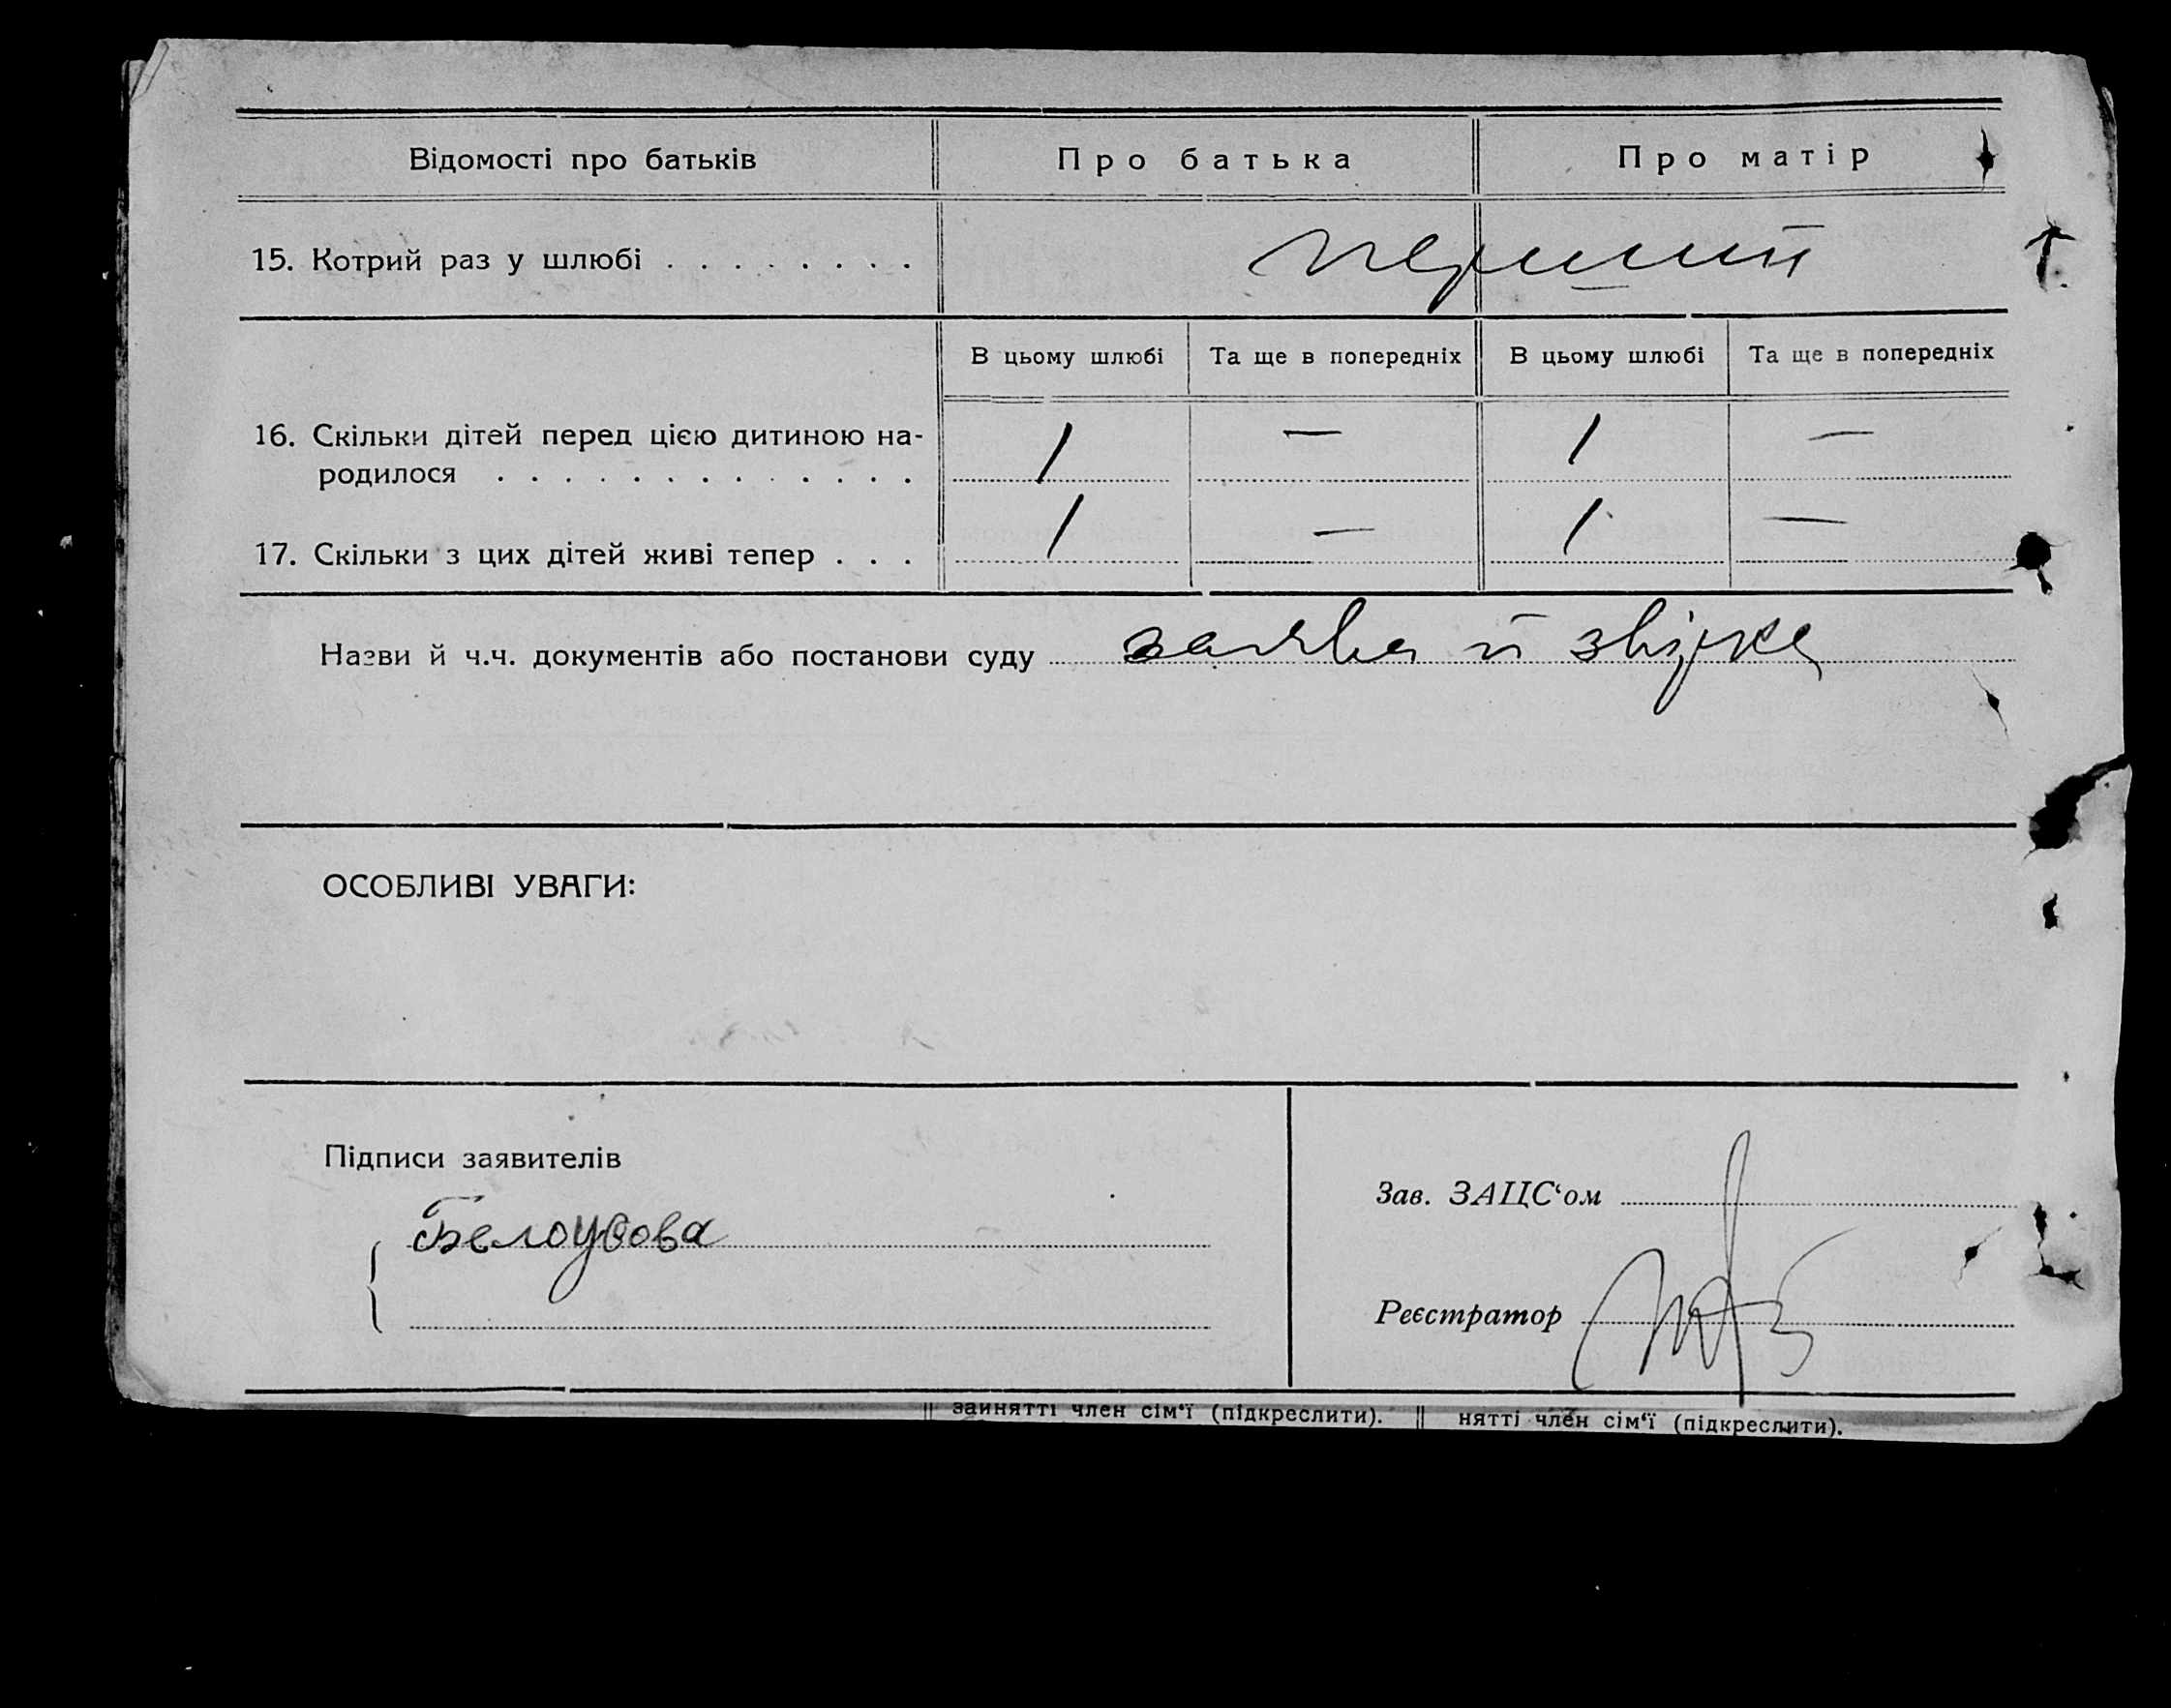 Відомості про батьків Про батька Про матір
15. Котрий раз у шлюбі . . . . . . . . перший
В цьому шлюбі Та ще в попередніх В цьому шлюбі Та ще в попередніх
16. Скільки дітей перед цією дитиною на-
родилося . . . . . . . . . . . . . 1 — 1 —
17. Скільки з цих дітей живі тепер . . . 1 — 1 —
Назви й ч.ч. документів або постанови суду заява й звірка
ОСОБЛИВІ УВАГИ:
Підписи заявителів
Зав. ЗАЦС‘ом
Белоусова
Реєстратор
зайнятті член сім‘ї (підкреслити). нятті член сім‘ї (підкреслити).